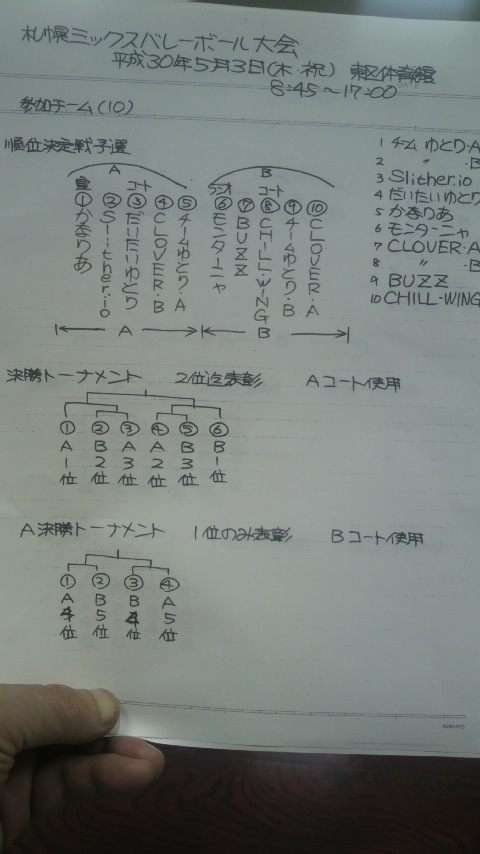 札幌ミックスバレーボール大会
平成30年5月3日(木・祝) 東区体育館
8:45〜17:00
参加チーム(10)
順位決定戦予選
A
B
コート
ラジオ コート
①かありあ
②Slither.io
③だいたいゆとり
④CLOVER・B
⑤チームゆとり・A
⑥モンターニャ
⑦BUZZ
⑧CHILL-WING
⑨チームゆとり・B
⑩CLOVER・A
A
B
1 チーム ゆとり・A
2 〃 ・B
3 Slither.io
4 だいたいゆとり
5 かありあ
6 モンターニャ
7 CLOVER・A
8 〃 ・B
9 BUZZ
10 CHILL-WING
決勝トーナメント 2位迄表彰 Aコート使用
① ② ③ ④ ⑤ ⑥
A B A A B B
1 2 3 2 3 1
位 位 位 位 位 位
A決勝トーナメント 1位のみ表彰 Bコート使用
① ② ③ ④
A B B A
4 5 4 5
位 位 位 位
KOKUYO